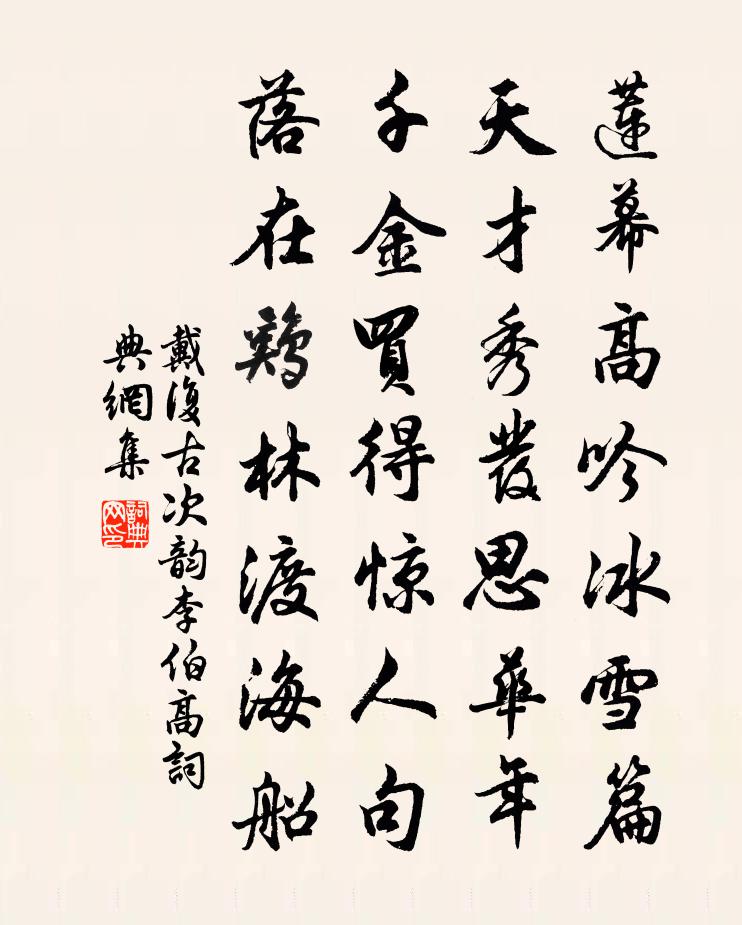 蓮幕高吟冰雪篇
天才秀發思華年
千金買得惊人句
落在鷄林渡海船
戴復古次韵李伯高詞
典網集
詞典
网印